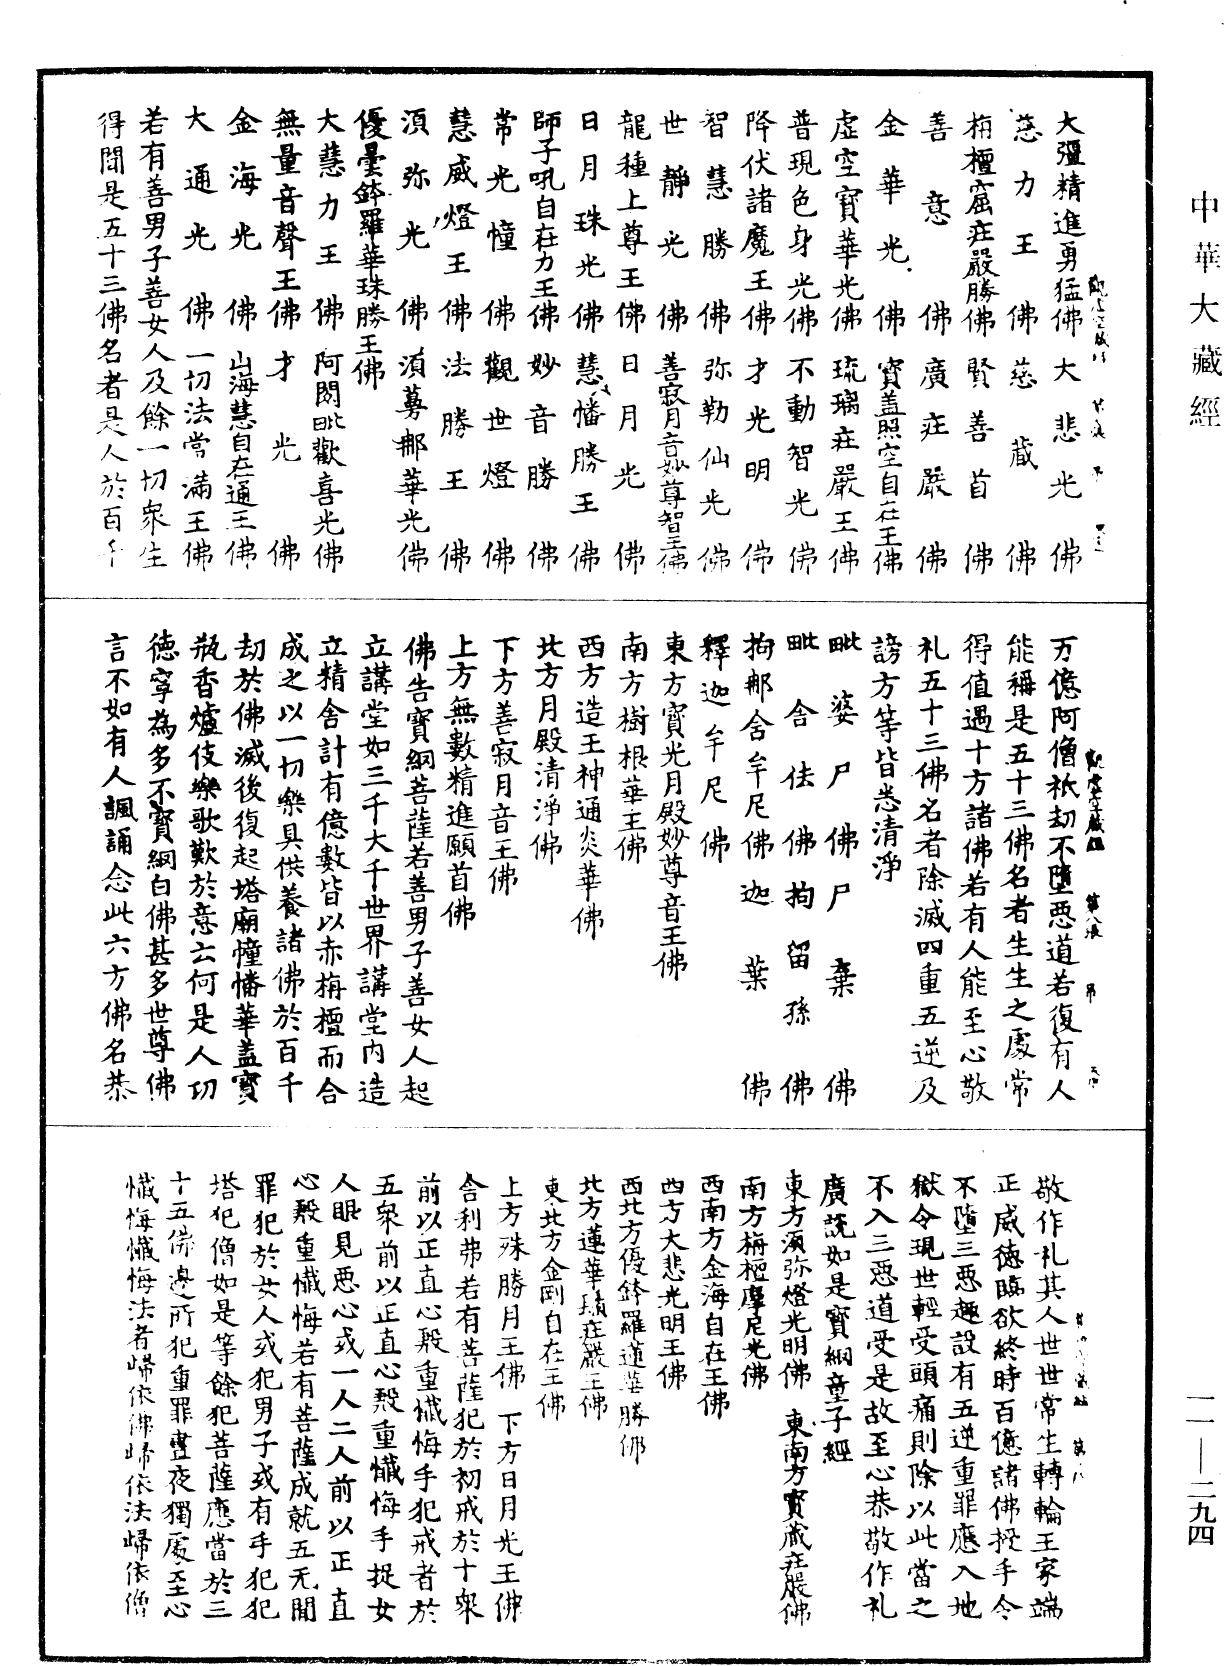 中華大藏經
大彊精進勇猛佛 大悲光佛
慈力王佛 慈藏佛
栴檀窟莊嚴勝佛 賢善首佛
善意佛 廣莊嚴佛
金華光佛 寶盖照空自在王佛
虛空寶華光佛 琉璃莊嚴王佛
普現色身光佛 不動智光佛
降伏諸魔王佛 才光明佛
智慧勝佛 弥勒仙光佛
世靜光佛 善寂月音妙尊智王佛
龍種上尊王佛 日月光佛
日月珠光佛 慧幡勝王佛
師子吼自在力王佛 妙音勝佛
常光幢佛 觀世燈佛
慧威燈王佛 法勝王佛
湏弥光佛 湏蔓那華光佛
優曇鉢羅華珠勝王佛
大慧力王佛 阿閦毗歡喜光佛
無量音聲王佛 才光佛
金海光佛 山海慧自在通王佛
大通光佛 一切法當滿王佛
若有善男子善女人及餘一切衆生
得聞是五十三佛名者是人於百千
万億阿僧祇劫不墮惡道若復有人
能稱是五十三佛名者生生之處常
得值遇十方諸佛若有人能至心敬
礼五十三佛名者除滅四重五逆及
謗方等皆悉清淨
毗婆尸佛 尸棄佛
毗舍佉佛 拘留孫佛
拘那舍牟尼佛 迦葉佛
釋迦牟尼佛
東方寶光月殿妙尊音王佛
南方樹根華王佛
西方造王神通炎華佛
北方月殿清淨佛
下方善寂月音王佛
上方無數精進願首佛
佛告寶網菩薩若善男子善女人起
立講堂如三千大千世界講堂内造
立精舍計有億數皆以赤栴檀而合
成之以一切樂具供養諸佛於百千
劫於佛滅後復起塔廟幢幡華盖寶
瓶香爐伎樂歌歎於意云何是人功
德寜為多不寶網白佛甚多世尊佛
言不如有人諷誦念此六方佛名恭
敬作礼其人世世常生轉輪王家端
正威德臨欲終時百億諸佛授手令
不墮三惡趣設有五逆重罪應入地
獄令現世輕受頭痛則除以此當之
不入三惡道受是故至心恭敬作礼
廣説如是寶網童子經
東方湏弥燈光明佛 東南方寶藏莊嚴佛
南方栴檀摩尼光佛
西南方金海自在王佛
西方大悲光明王佛
西北方優鉢羅蓮華勝佛
北方蓮華鬚莊嚴王佛
東北方金剛自在王佛
上方殊勝月王佛 下方日月光王佛
舍利弗若有菩薩犯於初戒於十衆
前以正直心殷重懺悔手犯戒者於
五衆前以正直心殷重懺悔手捉女
人眼見惡心或一人二人前以正直
心殷重懺悔若有菩薩成就五无間
罪犯於女人或犯男子或有手犯犯
塔犯僧如是等餘犯菩薩應當於三
十五佛邊所犯重罪晝夜獨處至心
懺悔懺悔法者歸依佛歸依法歸依僧
一一—二九四